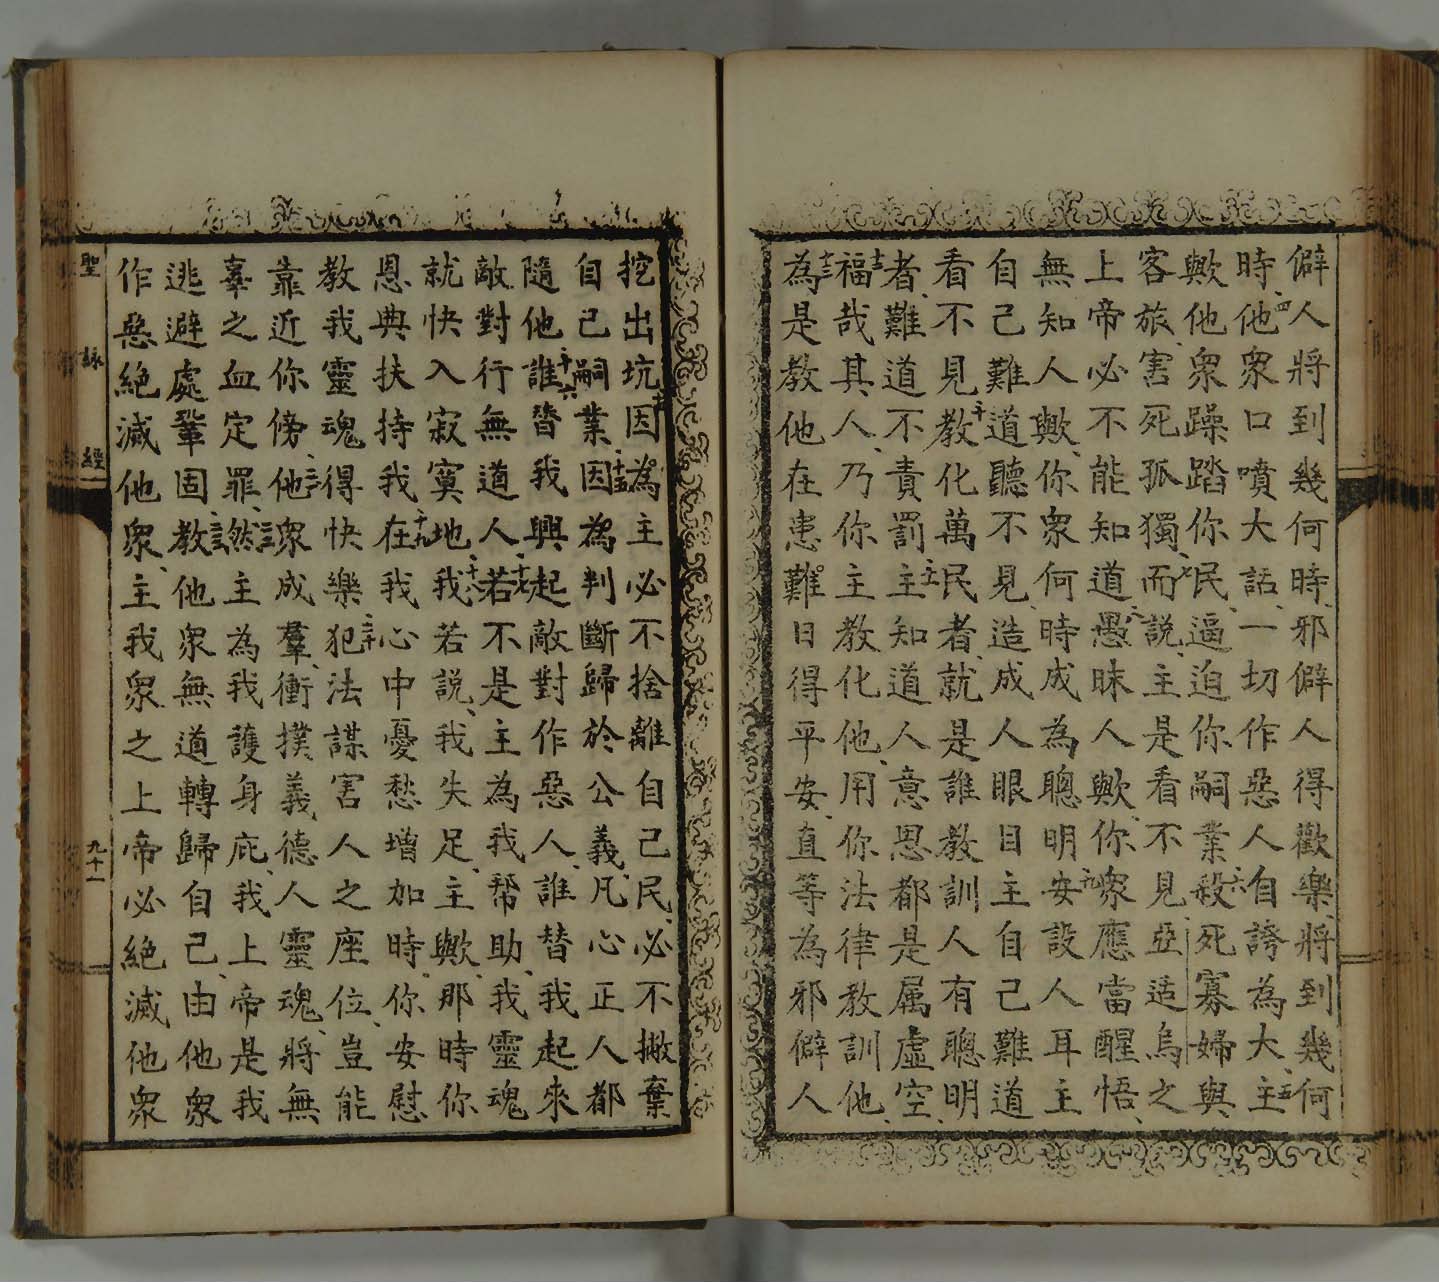 僻人將到幾何時、邪僻人得歡樂、將到幾何
時、四他衆口噴大話、一切作惡人自誇為大、五主
歟他衆躁踏你民、逼迫你嗣業、六殺死寡婦與
客旅、害死孤獨、七而說、主是看不見、亞适烏之
上帝必不能知道、八愚昧人歟、你衆應當醒悟、
無知人歟、你衆何時成為聰明、九安設人耳主
自己難道聽不見、造成人眼目主自己難道
看不見、十教化萬民者、就是誰教訓人有聰明
者、難道不責罰、十一主知道人意思都是属虛空、
十二福哉其人、乃你主教化他、用你法律教訓他、
十三為是教他在患難日得平安、直等為邪僻人
挖出坑、十四因為主必不捨離自己民、必不撇棄
自己嗣業、十五因為判斷歸於公義、凡心正人都
隨他、十六誰替我興起敵對作惡人、誰替我起來
敵對行無道人、十七若不是主為我幫助、我靈魂
就快入寂寞地、十八我若說、我失足、主歟、那時你
恩典扶持我、十九在我心中憂愁增加時、你安慰
教我靈魂得快樂、二十犯法謀害人之座位、豈能
靠近你傍、二一他衆成羣、衝撲義德人靈魂、將無
辜之血定罪、二二然主為我護身庇、我上帝是我
逃避處鞏固、二三教他衆無道轉歸自己、由他衆
作惡絕滅他衆、主我衆之上帝必絕滅他衆
聖詠經
九十一